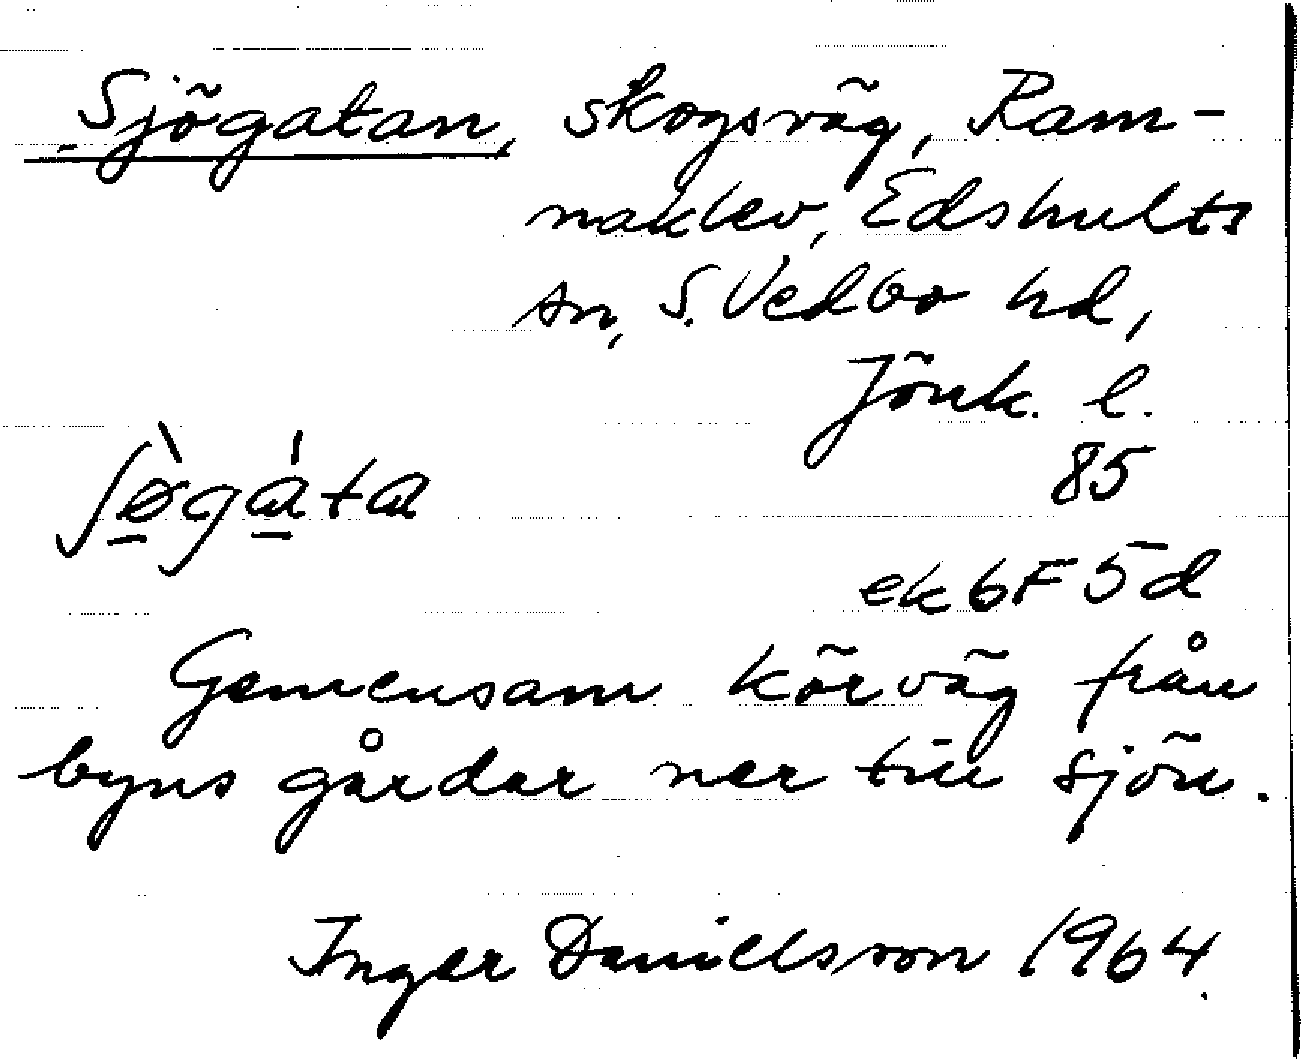 Sjögatan, skogsväg, Ram-
naklev, Edshults
sn, S. Vedbo hd,
Jönk. l.
ʃø̀gáta 85
ek 6F 5d
Gemensam körväg från
byns gårdar ner till sjön.
Inger Danielsson 1964.